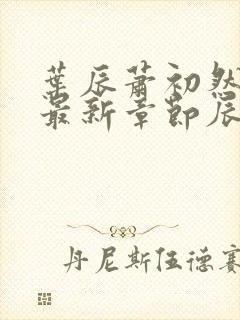 葉辰蕭初然
最新章節辰
丹尼斯伍德賽